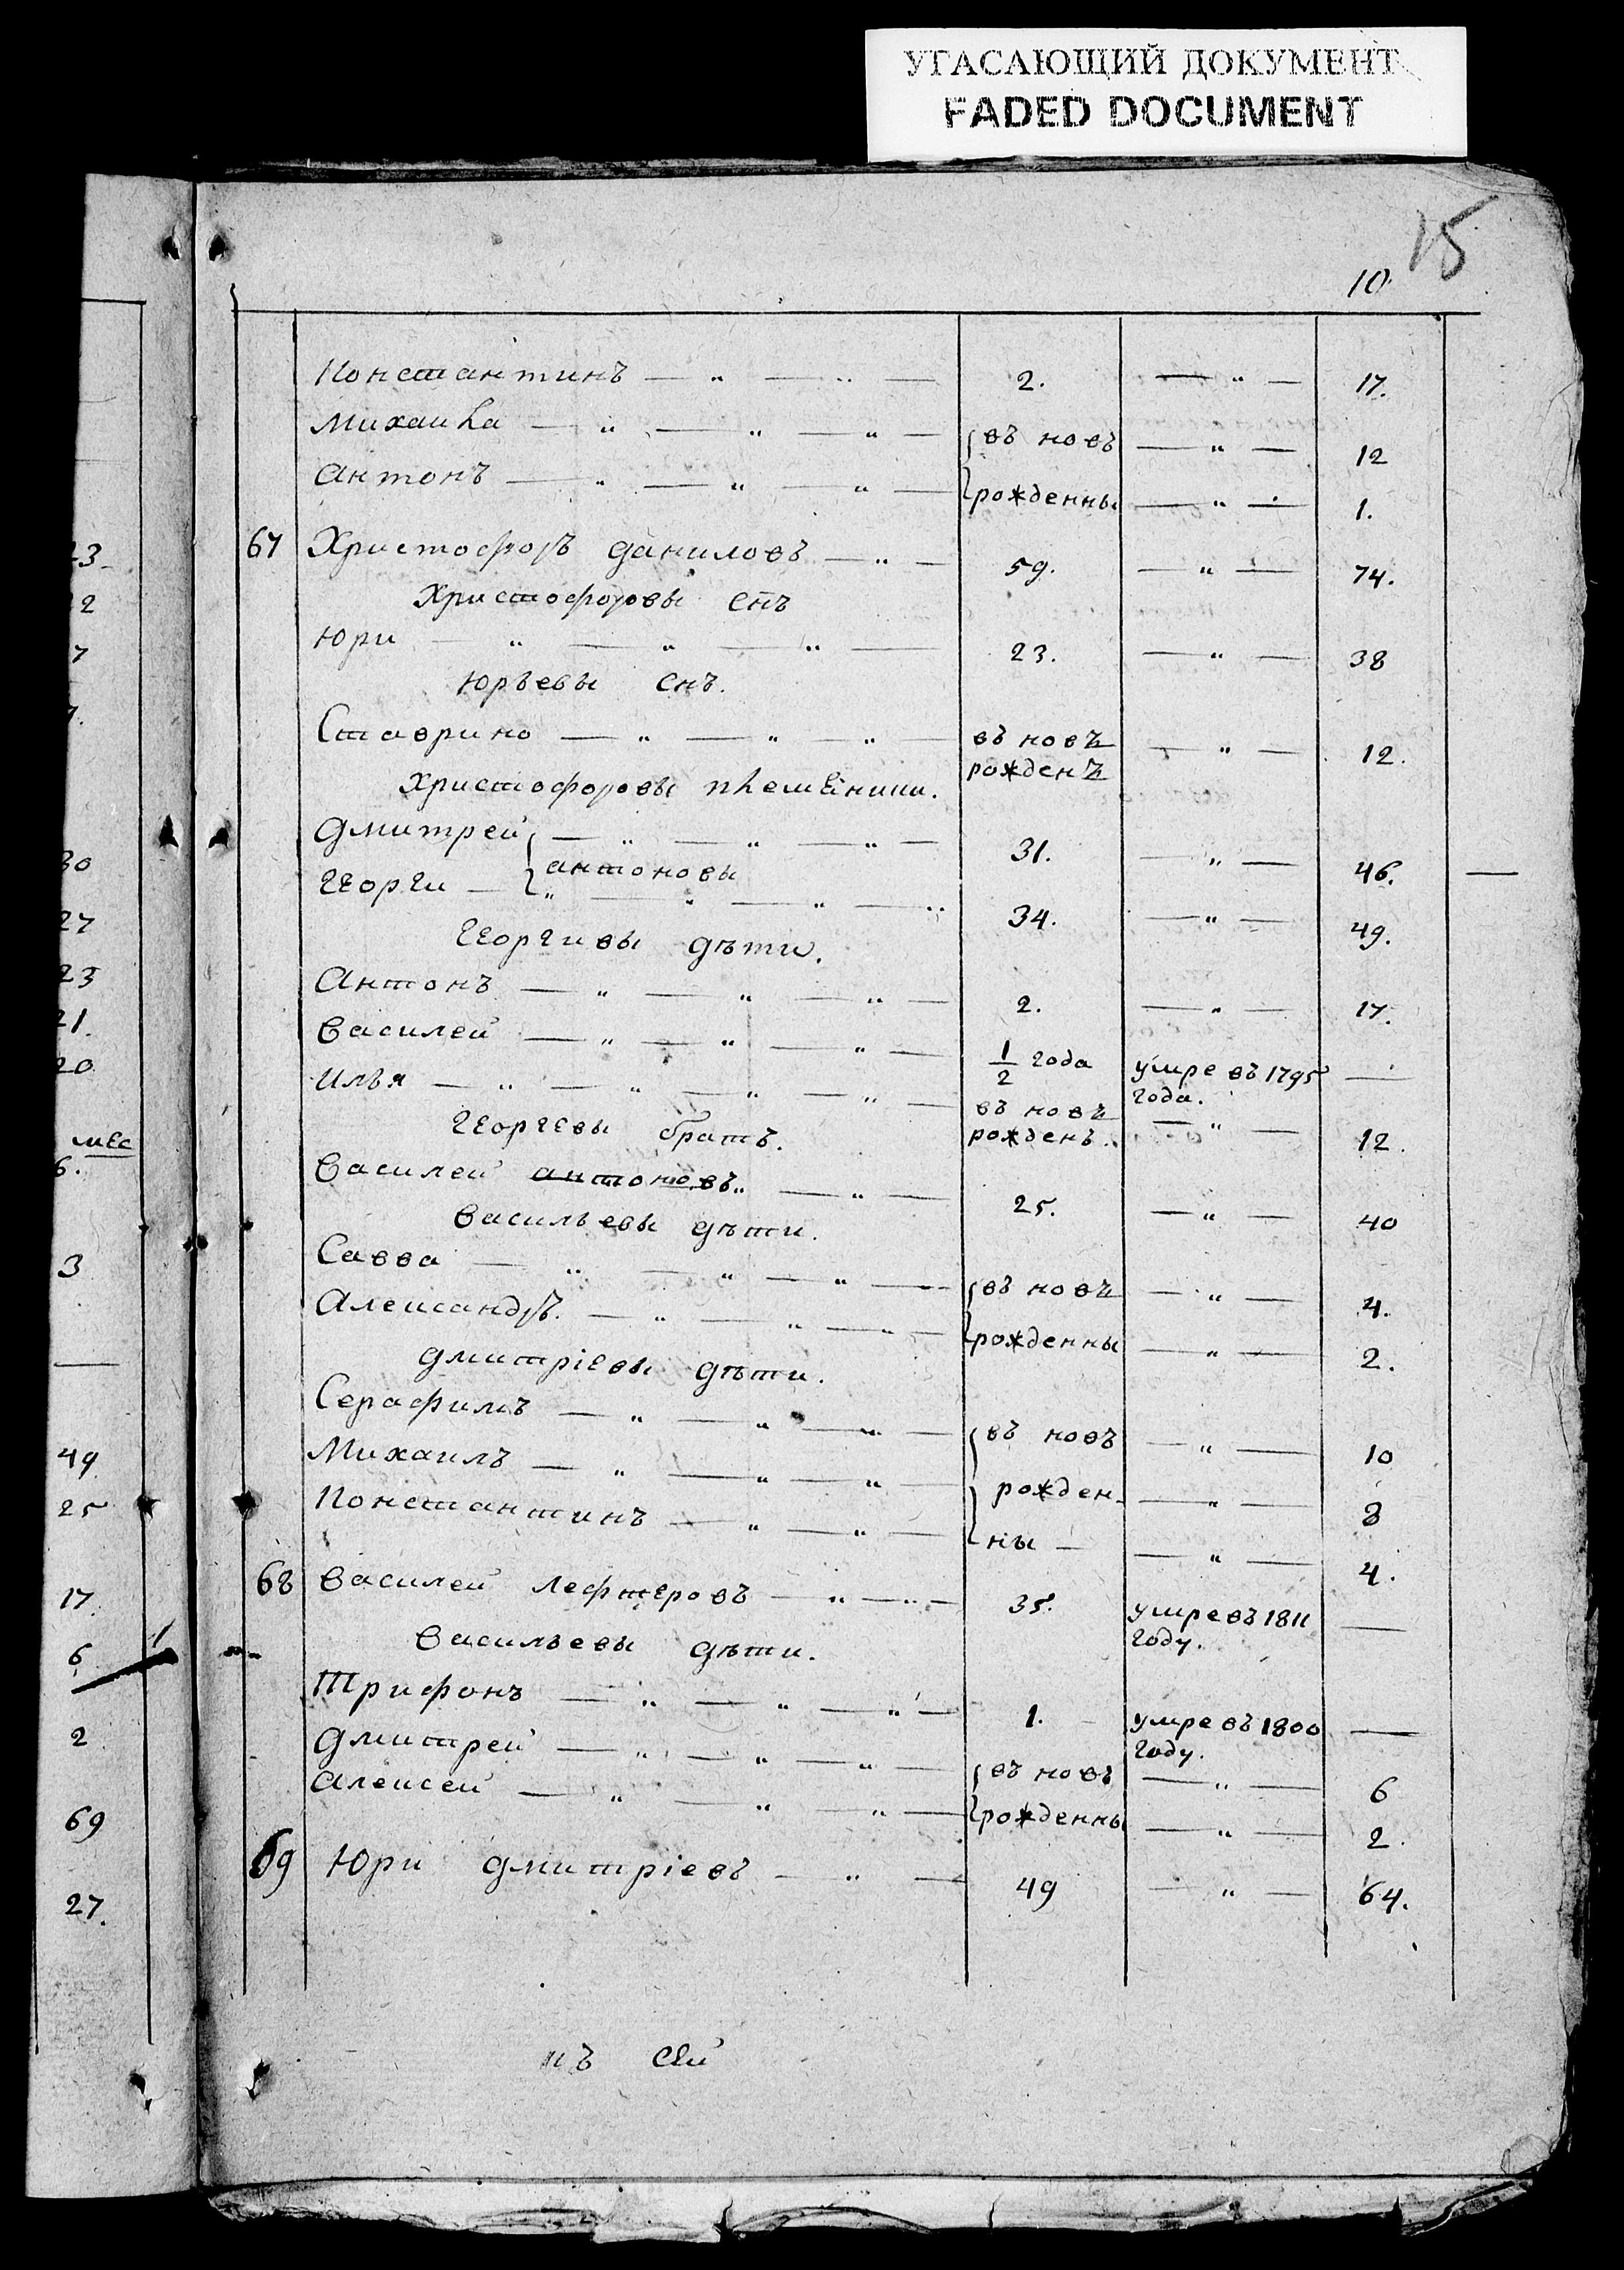 УГАСАЮЩИЙ ДОКУМЕНТ
FADED DOCUMENT
15
10
Константинъ — " — " — 2. — " — 17.
Михаила — " — " — " — въ новъ — " — 12
Антонъ — " — " — " — рожденны — " — 1.
67 Христофоръ Даниловъ — " — 59. — " — 74.
Христофоровы снъ
Юри — " — " — " — 23. — " — 38
Юрьевы снъ.
Ставрино — " — " — " — въ новъ — " — 12.
рожденъ
Христофоровы племѣники.
Дмитрей — " — " — " — 31. — " — 46. —
антоновы
Георги — " — " — " — 34. — " — 49.
Георгивы дѣти.
Антонъ — " — " — " — 2. — " — 17.
Василей — " — " — " — 1/2 года умре въ 1795 —
года.
Илья — " — " — " — " — въ новъ — " — 12.
Георгевы братъ. рожденъ.
Василей антоновъ " — " — 25. — " — 40
Васильевы дѣти.
Савва — " — " — " — въ новъ — " — 4.
Александръ. — " — " — " — рожденны — " — 2.
Дмитріевы дѣти.
Серафимъ — " — " — " — въ новъ — " — 10
Михаилъ — " — " — " — рожден- — " — 8
Константинъ — " — " — ны — — " — 4.
68 Василей Лефтеровъ — " — " — 35. умре въ 1811 —
году.
Васильевы дѣти.
Трифонъ — " — " — " — 1. умре въ 1800 —
году.
Дмитрей — " — " — " — въ новъ — " — 6
Алексей — " — " — " — рожденны — " — 2.
69 Юри Дмитріевъ — " — 49 — " — 64.
къ сей
23.
2
7
7.
30
27
23
21.
20
мѣс
6.
3
—
49
25
17.
6
2
69
27.